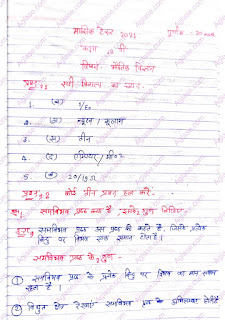 मासिक टेस्ट 2021
पूर्णांक = 20
कक्षा
विषय भौतिक विज्ञान
सही विकल्प का चयन
1. (ब) 1/ε₀
2. (अ) न्यूटन / कूलाम
3. (स) तीन
4. (द) एम्पियर / मी०2
5. (ब)
प्रश्न 2 कोई तीन प्रश्न हल करें -
समविभव पृष्ठ क्या है इसके गुण लिखिए
समविभव पृष्ठ उस पृष्ठ को कहते हैं, जिसके प्रत्येक
बिंदु पर विभव एक समान होता है।
समविभव पृष्ठ के गुण
① समविभव पृष्ठ के प्रत्येक बिंदु पर विभव का मान समान
रहता है।
② विद्युत क्षेत्र रेखाएं समविभव पृष्ठ के अभिलम्बवत होती हैं